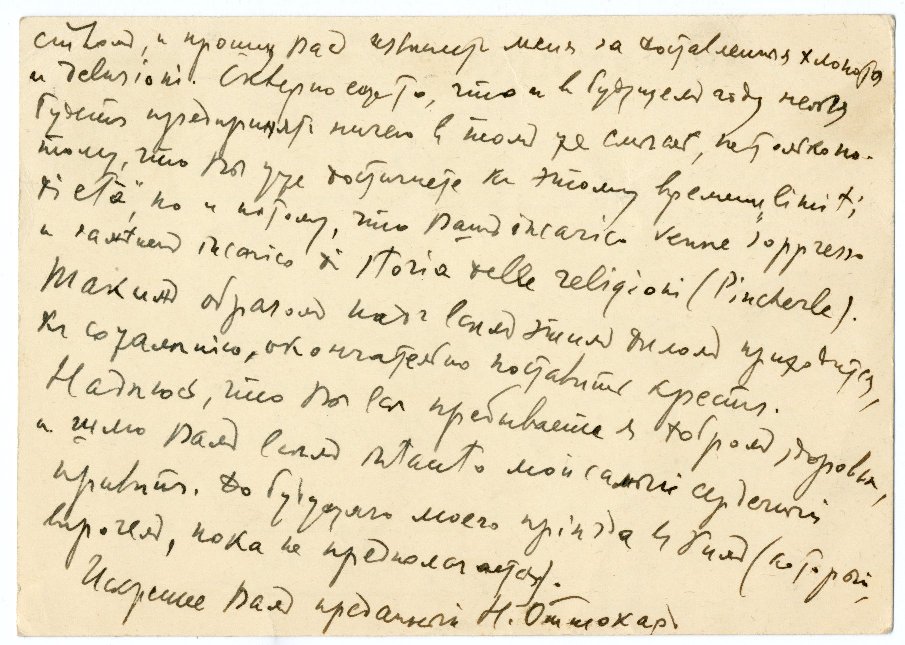 ствомъ, и прошу Васъ извинить меня за доставленныя хлопоты
и delusioni. Скверно еще то, что и въ будущемъ году нельзя
будетъ предпринять ничего въ томъ же смыслѣ, не только по-
тому, что Вы уже достигнете къ этому времени „limiti
di età“, но и потому, что Вашъ incarico venne soppresso
и замѣненъ incarico di storia delle religioni (Pincherle).
Такимъ образомъ надъ всѣмъ этимъ дѣломъ приходится,
къ сожалѣнію, окончательно поставить крестъ.
Надѣюсь, что Вы всѣ пребываете въ добромъ здоровьи,
и шлю Вамъ всѣмъ мой самый сердечный
привѣтъ. До будущаго моего пріѣзда въ Римъ (который,
впрочемъ, пока не предполагается).
Искренне Вамъ преданный Н. Оттокаръ